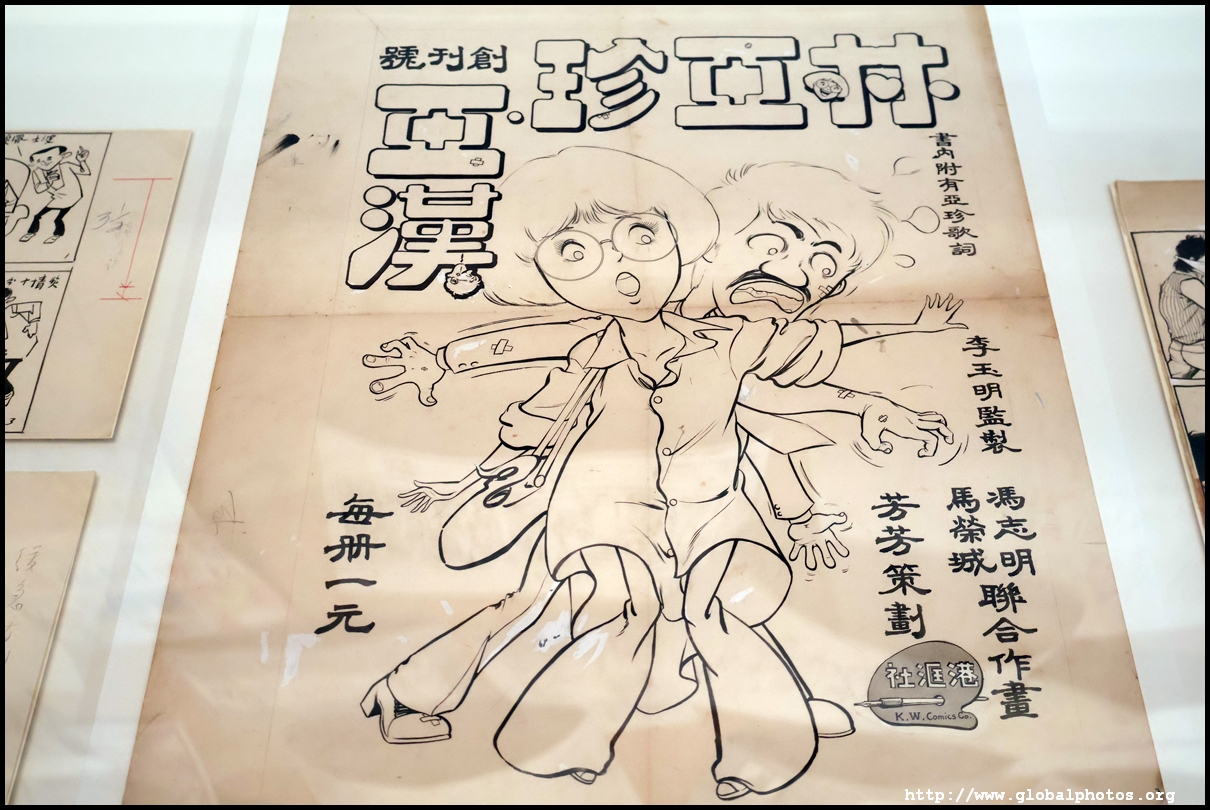 林亞珍·
亞漢
創刊號
書內附有亞珍歌詞
李玉明監製
馮志明
馬榮城
聯合作畫
芳芳策劃
每册一元
港涯社
K.W. Comics Co.
http://www.globalphotos.org